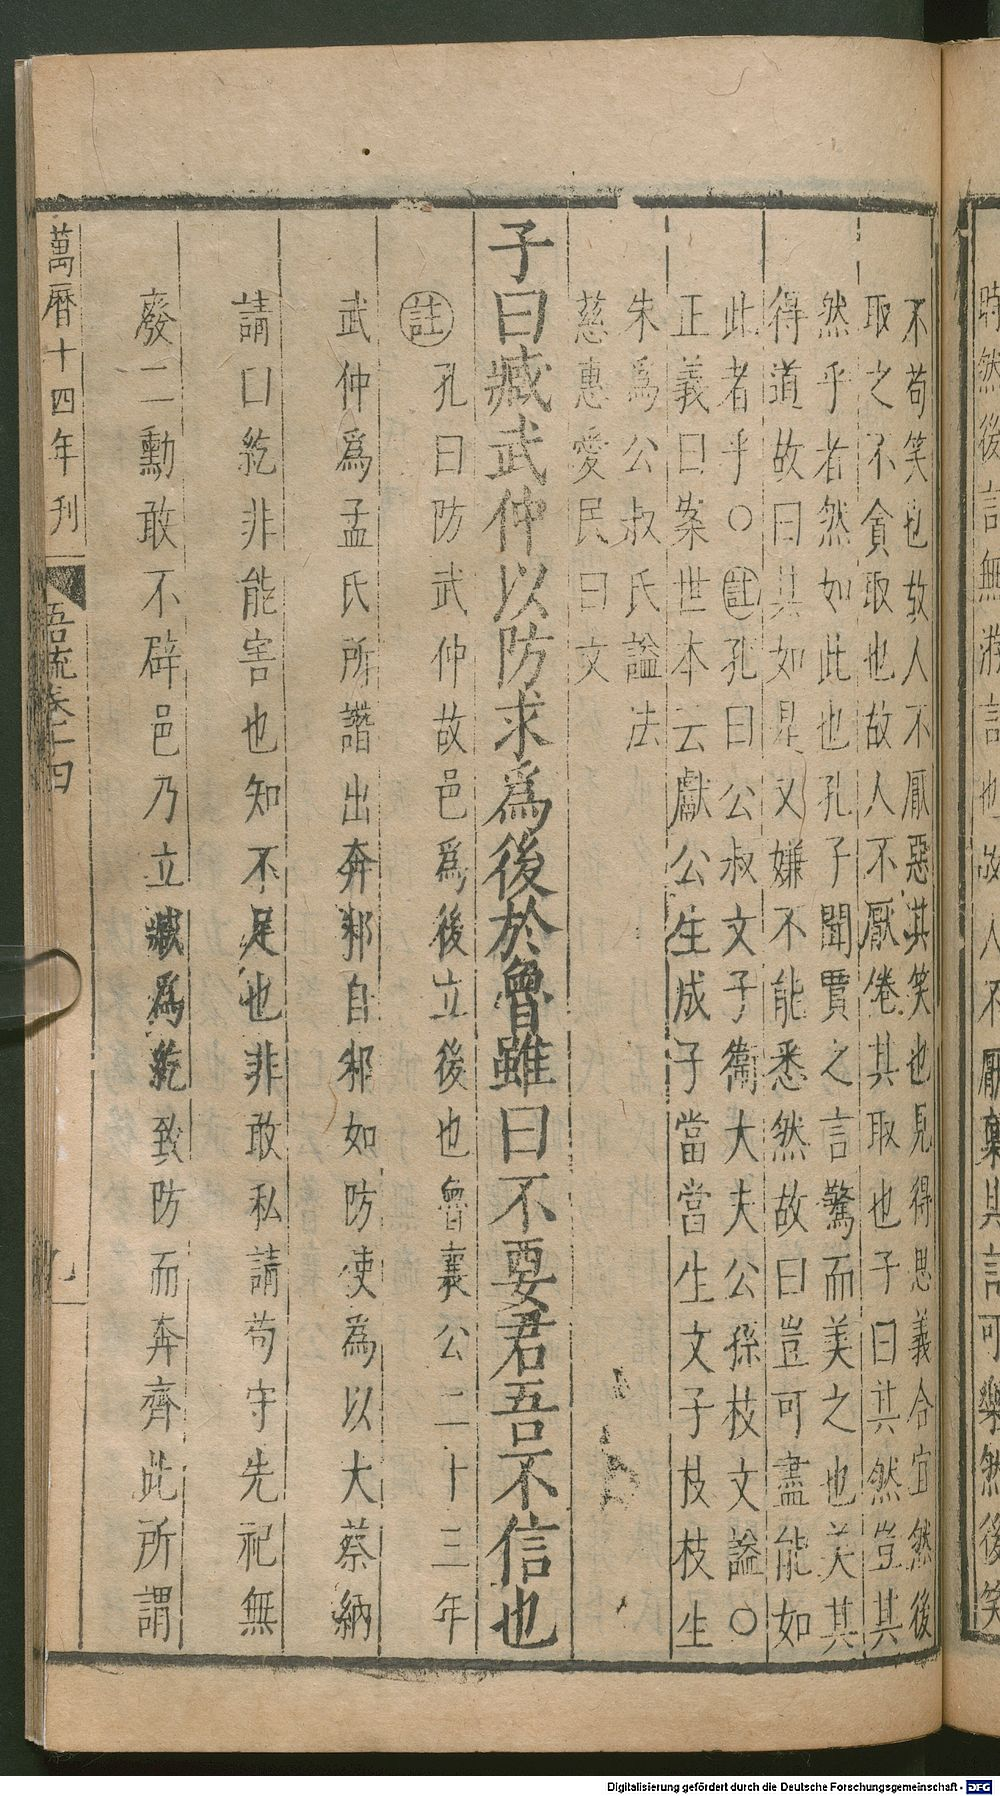 時然後言無游言也故人不厭棄其言可樂然後笑
不苟笑也故人不厭惡其笑也見得思義合宜然後
取之不貪取也故人不厭倦其取也子曰其然豈其
然乎者然如此也孔子聞賈之言驚而美之也美其
得道故曰其如是又嫌不能悉然故曰豈可盡能如
此者乎〇註孔曰公叔文子衞大夫公孫枝文謚〇
正義曰案世本云獻公生成子當當生文子枝枝生
朱爲公叔氏謚法
慈惠愛民曰文
子曰臧武仲以防求爲後於魯雖曰不要君吾不信也
註孔曰防武仲故邑爲後立後也魯襄公二十三年
武仲爲孟氏所譖出奔邾自邾如防使爲以大蔡納
請曰紇非能害也知不足也非敢私請苟守先祀無
廢二勳敢不辟邑乃立臧爲紇致防而奔齊此所謂
萬曆十四年刊
語疏卷十四
九
Digitalisierung gefördert durch die Deutsche Forschungsgemeinschaft - DFG